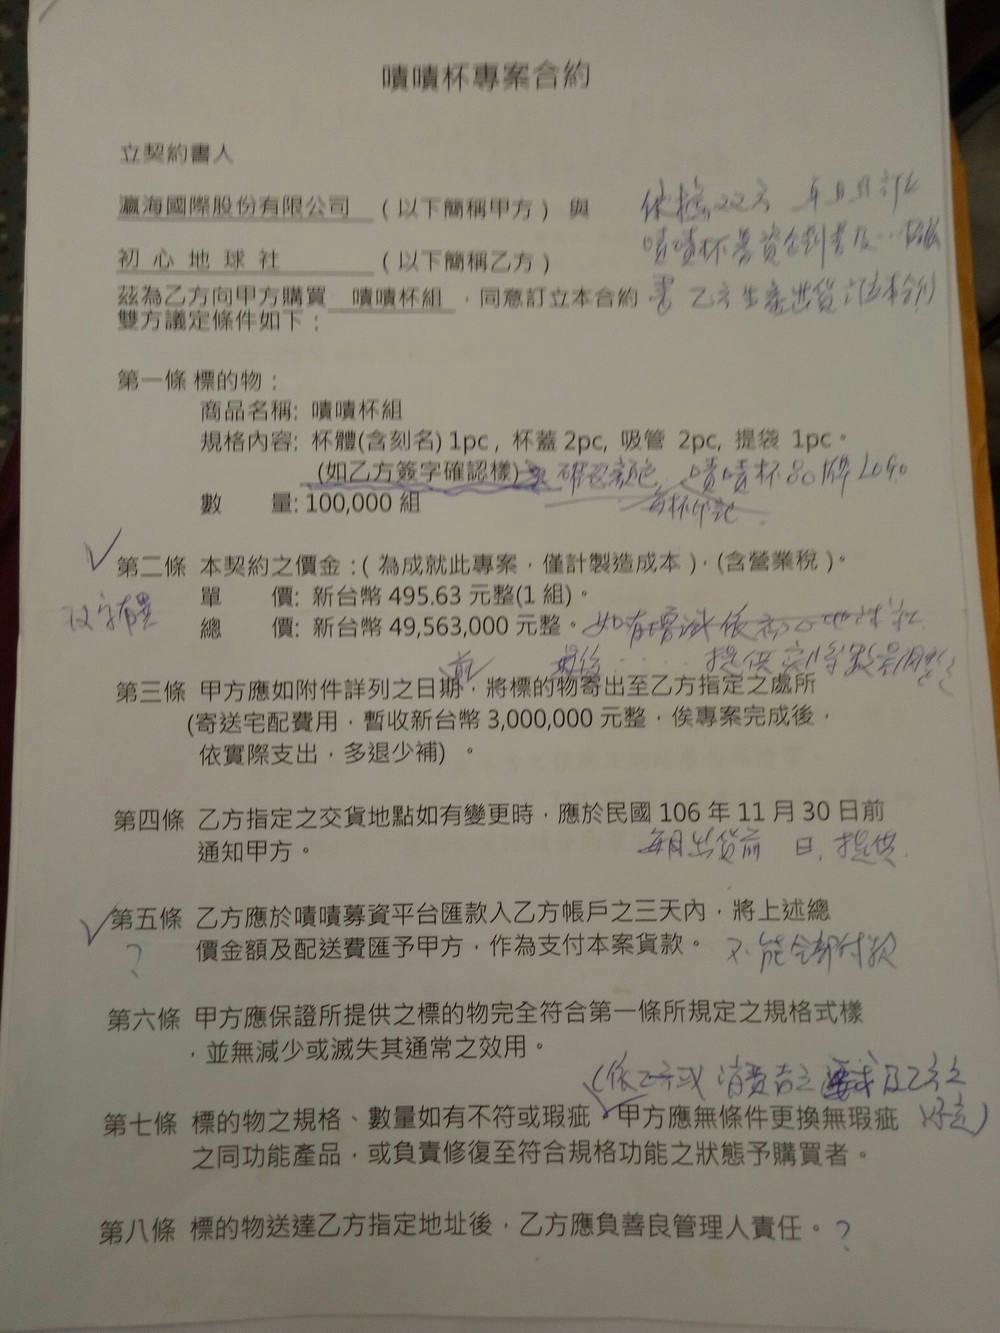 嘖嘖杯專案合約
立契約書人
瀛海國際股份有限公司 (以下簡稱甲方) 與
初心地球社 (以下簡稱乙方)
嘖嘖杯募資企劃書及
茲為乙方向甲方購買 嘖嘖杯組 ，同意訂立本合約 書 乙方生產出貨
雙方議定條件如下：
第一條 標的物：
商品名稱: 嘖嘖杯組
規格內容: 杯體(含刻名) 1pc , 杯蓋 2pc, 吸管 2pc, 提袋 1pc。
(如乙方簽字確認樣) 嘖嘖杯品牌LOGO
數 量: 100,000 組
每杯印記
第二條 本契約之價金：( 為成就此專案，僅計製造成本 )，(含營業稅)。
單 價: 新台幣 495.63 元整(1 組)。
總 價: 新台幣 49,563,000 元整。 如有增減依初心地球社
前 提供
第三條 甲方應如附件詳列之日期，將標的物寄出至乙方指定之處所
(寄送宅配費用，暫收新台幣 3,000,000 元整，俟專案完成後，
依實際支出，多退少補) 。
第四條 乙方指定之交貨地點如有變更時，應於民國 106 年 11 月 30 日前
通知甲方。 每月出貨前 日,提供.
第五條 乙方應於嘖嘖募資平台匯款入乙方帳戶之三天內，將上述總
? 價金額及配送費匯予甲方，作為支付本案貨款。 不能全部付款
第六條 甲方應保證所提供之標的物完全符合第一條所規定之規格式樣
，並無減少或滅失其通常之效用。
(依乙方或消費者之要求及乙方之
第七條 標的物之規格、數量如有不符或瑕疵，甲方應無條件更換無瑕疵
之同功能產品，或負責修復至符合規格功能之狀態予購買者。
第八條 標的物送達乙方指定地址後，乙方應負善良管理人責任。?